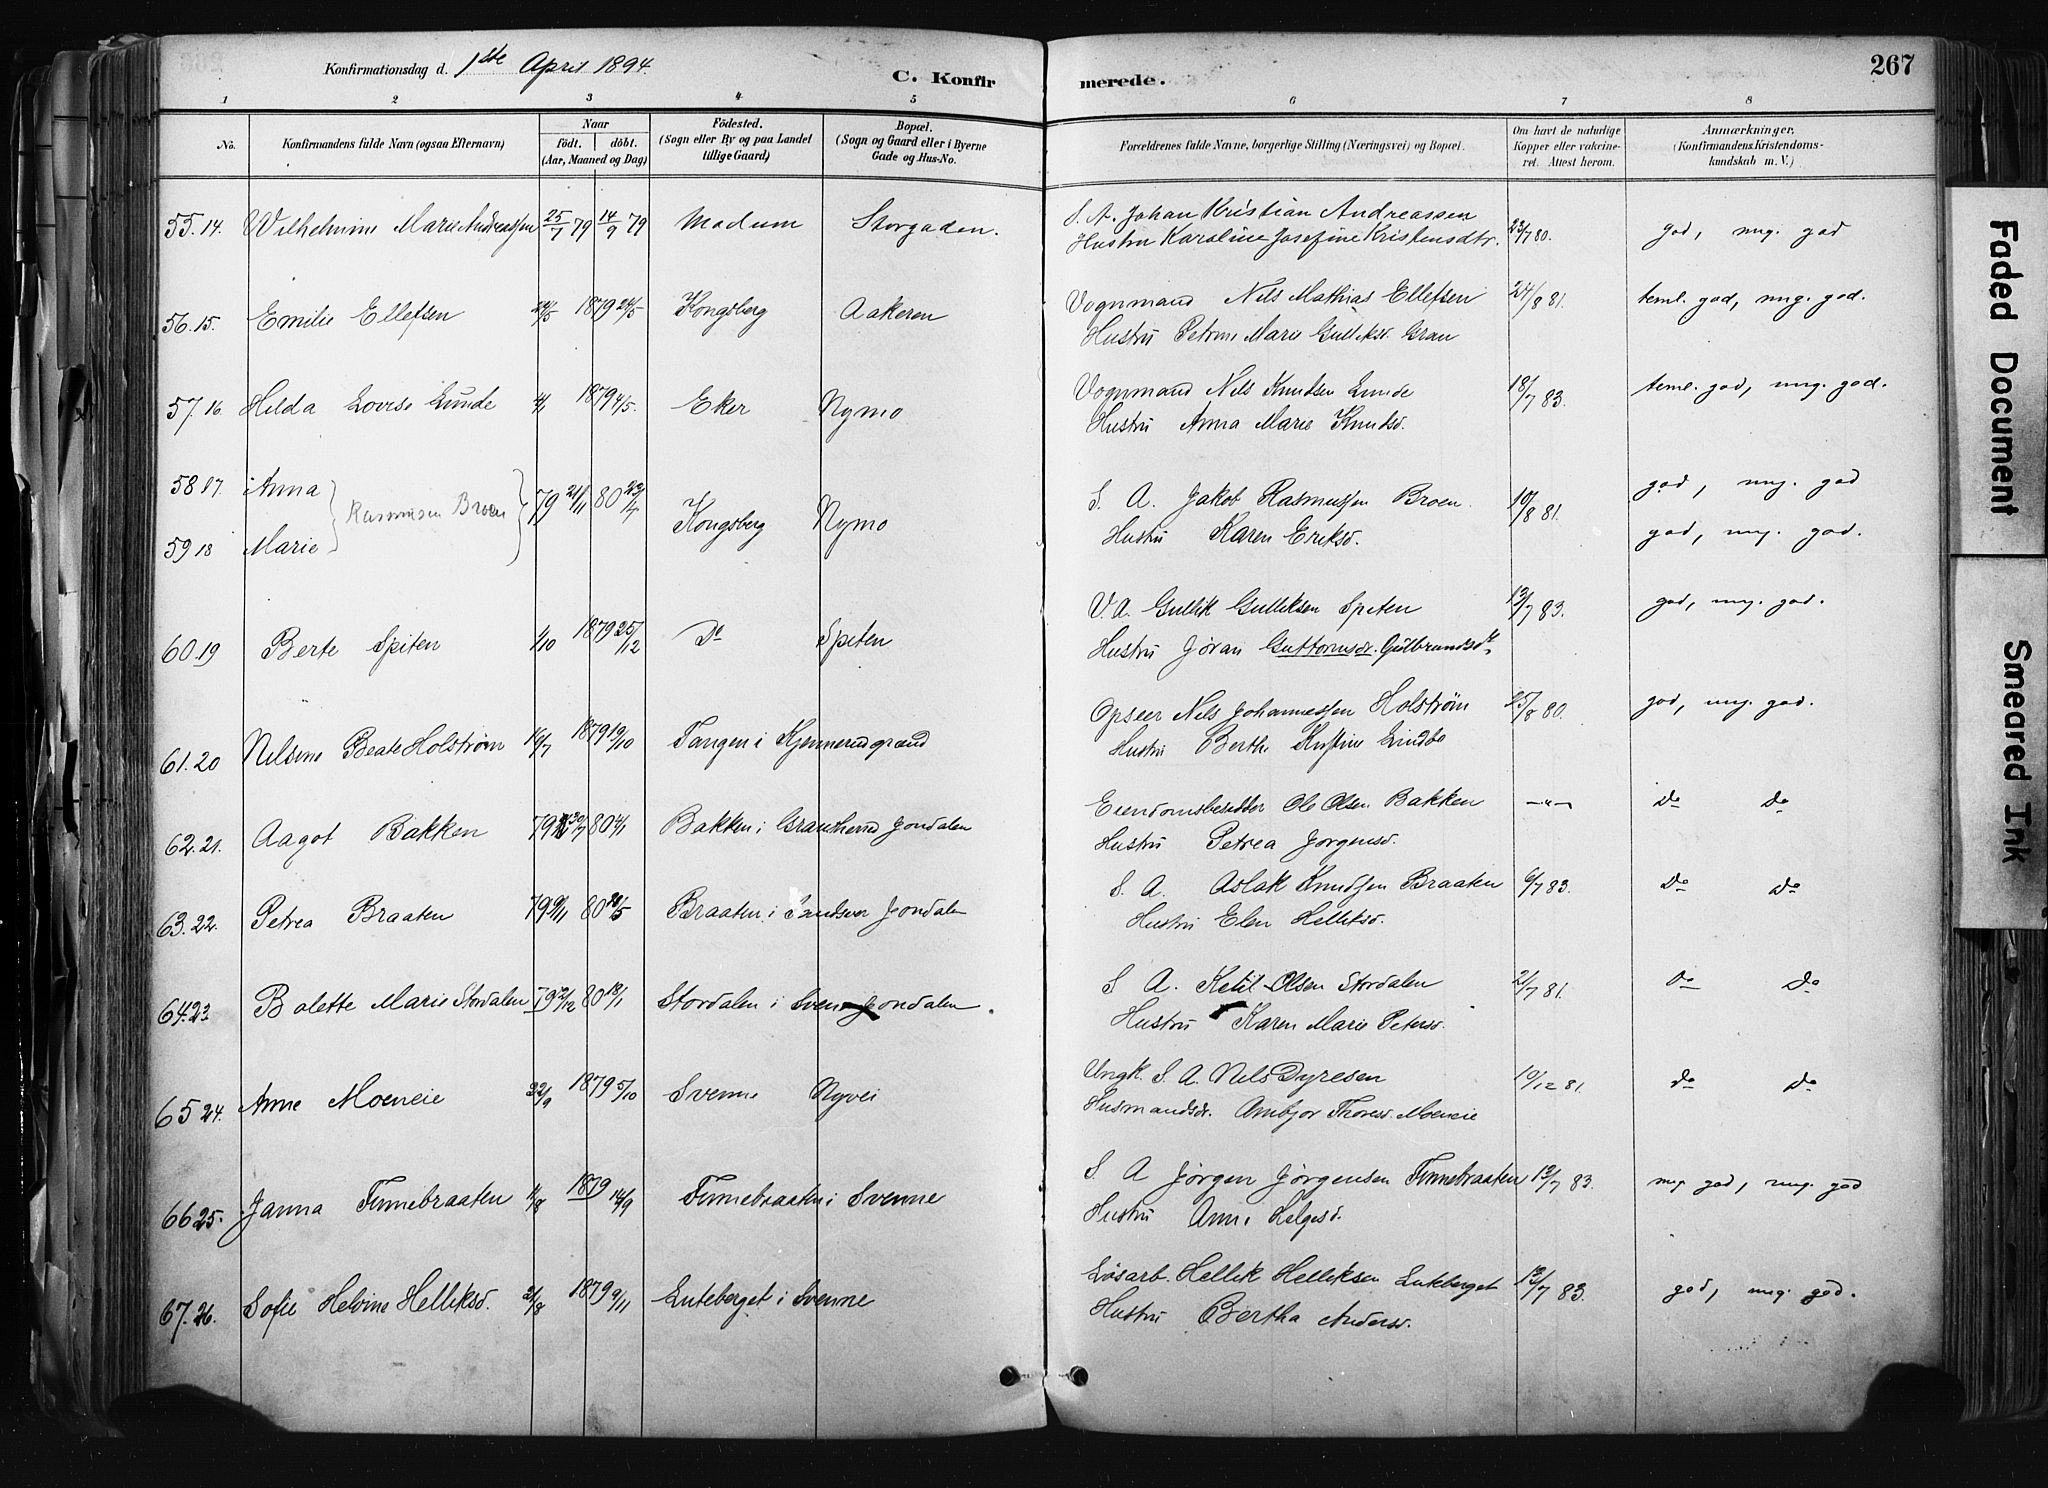 Konfirmationsdag d. 1ste April 1894.
C. Konfirmerede.
267
1 2 3 4 5 6 7 8
No.
Konfirmandens fulde Navn (ogsaa Efternavn)
Naar
födt. döbt.
(Aar, Maaned og Dag)
Födested.
(Sogn eller By og paa Landet tillige Gaard)
Bopæl.
(Sogn og Gaard eller i Byerne Gade og Hus-No.
Forældrenes fulde Navne, borgerlige Stilling (Næringsvei) og Bopæl.
Om havt de naturlige Kopper eller vakcineret. Attest herom.
Anmærkninger.
(Konfirmandens Kristendomskundskab m. V.)
55.14. Wilhelmine Marie Andreassen 25/7 79 14/9 79 Modum Storgaden. S. A. Johan Kristian Andreassen 23/7 80. god, mg. god
Hustru Karoline Josefine Kristensdtr.
56.15. Emilie Ellefsen 1879 24/5 Kongsberg Aakeren Vognmand Nils Mathias Ellefsen 24/8 81. teml. god, mg. god.
Hustru Petrine Marie Gulliksd. Grau
57.16 Hilda Lovise Lunde 1879 4/5. Eker Nymo Vognmand Nils Knudsen Lunde 18/7 83. teml. god, mg. god.
Hustru Anna Marie Knudsd.
58 17. Anna Rasmusen Broen 79 21/11 80 Kongsberg Nymo S. A. Jakob Rasmussen Broen. 10/8 81. god, mg. god
59 18 Marie Hustru Karen Eriksd. god, mg. god.
60.19 Berte Spiten 1/10 1879 25/12 Do Spiten V. A. Gullik Gulliksen Spiten 13/7 83. god, mg. god.
Hustru Jøran Guttormsdr. Gulbrandsdt.
61.20 Nilsine Beate Holstrøm 16/7 1879 19/10 Tangen i Kjennerudgrænd Opseer Nils Johannessen Holstrøm 25/8 80. god, mg. god.
Hustru Berthe Kristine Lindbo
62.21. Aagot Bakken 79 80 4/1 Bakken i Gransherud Jondalen Eiendomsbesidder Ole Olsen Bakken —"— Do Do
Hustru Petrea Jørgensd.
63.22. Petrea Braaten 79 9/11 80 Braaten i Sandsver Jondalen S. A. Aslak Knudsen Braaten 6/7 83. Do Do
Hustru Elen Helliksd.
64.23. Bolette Marie Stordalen 79 80 18/1 Stordalen i Sven Jondalen. S. A. Ketil Olsen Stordalen 2/7 81. Do Do
Hustru Karen Marie Petersd.
65 24. Anne Moeneie 22/9 1879 5/10 Svenne Nyvei Ungk. S. A. Nils Dyresen 19/12 81. Do Do
Husmandsdr. Ambjor Thoresd. Moeneie
66 25. Janna Finnebraaten 1879 14/9 Finnebraaten i Svenne S. A Jørgen Jørgensen Finnebraaten 13/7 83. mg god, mg. god
Hustru Anne Helgesd.
67.26. Sofie Helvine Helliksd. 21/8 1879 9/11 Luteberget i Svenne Løsarb. Hellik Helliksen Luteberget 13/7 83. god, mg. god.
Hustru Bertha Andersd.
Faded Document
Smeared Ink